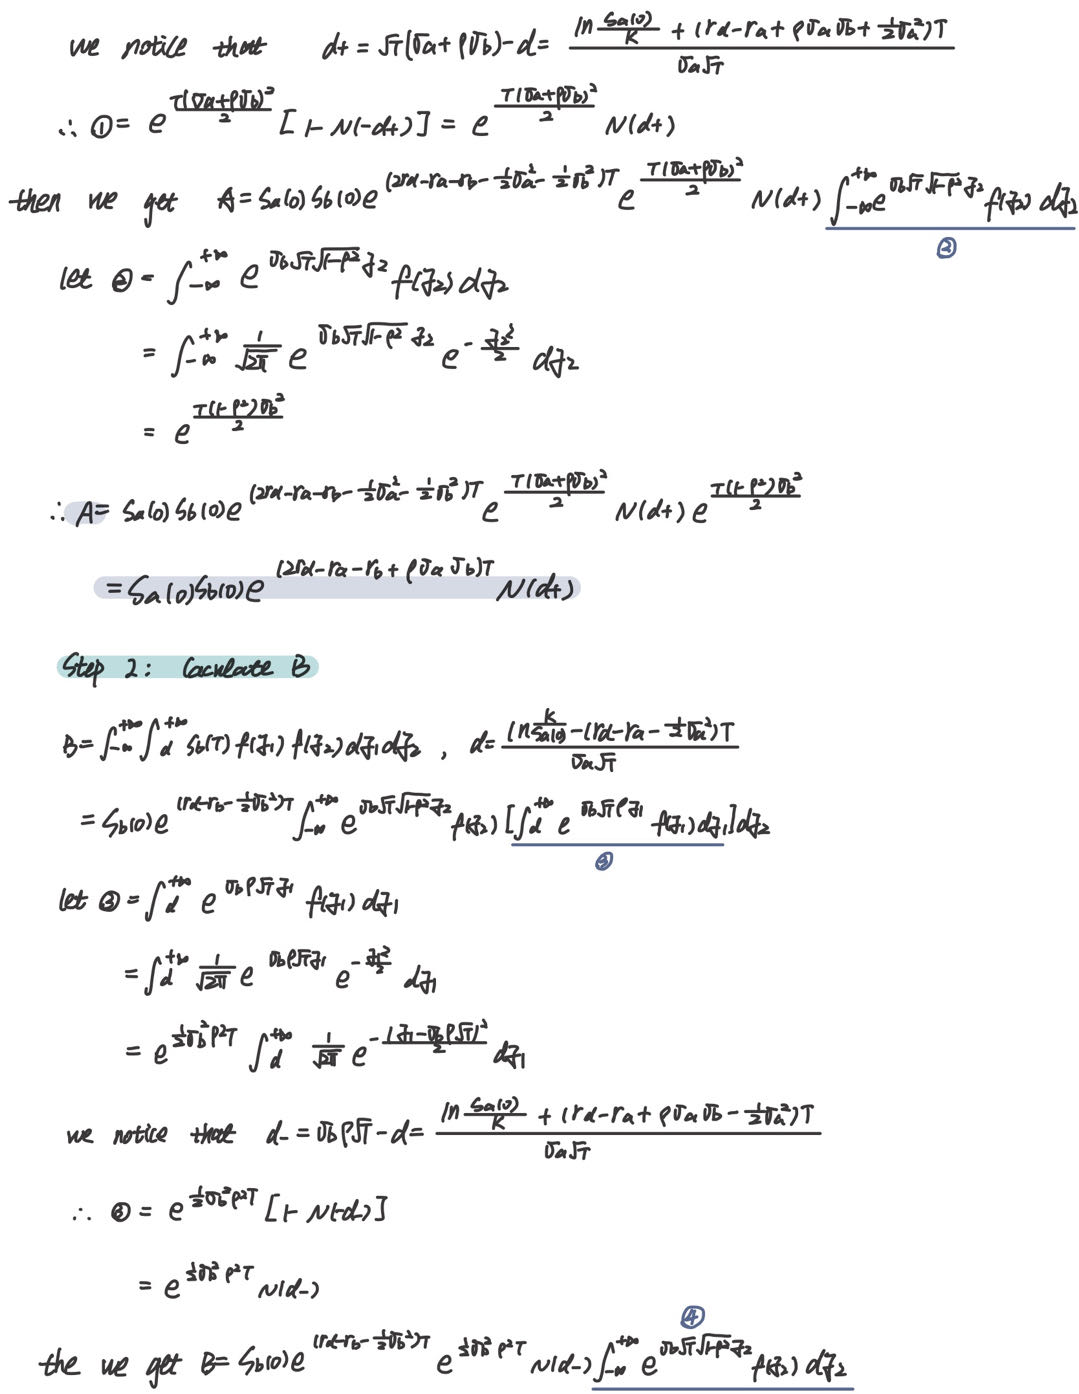 we notice that d+ = √T(σa+ρσb)-d = (ln Sa(0)/K + (rd-ra+ρσaσb+½σa²)T) / (σa√T)
∴ ① = e^(T(σa+ρσb)²/2) [1-N(-d+)] = e^(T(σa+ρσb)²/2) N(d+)
then we get A = Sa(0)Sb(0)e^((2rd-ra-rb-½σa²-½σb²)T) e^(T(σa+ρσb)²/2) N(d+) ∫_{-∞}^{+∞} e^(σb√T√(1-ρ²)z₂) f(z₂) dz₂
②
let ② = ∫_{-∞}^{+∞} e^(σb√T√(1-ρ²)z₂) f(z₂) dz₂
= ∫_{-∞}^{+∞} 1/√(2π) e^(σb√T√(1-ρ²)z₂) e^(-z₂²/2) dz₂
= e^(T(1-ρ²)σb²/2)
∴ A = Sa(0)Sb(0)e^((2rd-ra-rb-½σa²-½σb²)T) e^(T(σa+ρσb)²/2) N(d+) e^(T(1-ρ²)σb²/2)
= Sa(0)Sb(0)e^((2rd-ra-rb+ρσaσb)T) N(d+)
Step 2: Caculate B
B = ∫_{-∞}^{+∞} ∫_{d}^{+∞} Sb(T) f(z₁) f(z₂) dz₁dz₂ , d = (ln K/Sa(0) - (rd-ra-½σa²)T) / (σa√T)
= Sb(0)e^((rd-rb-½σb²)T) ∫_{-∞}^{+∞} e^(σb√T√(1-ρ²)z₂) f(z₂) [∫_{d}^{+∞} e^(σb√Tρz₁) f(z₁)dz₁]dz₂
③
let ③ = ∫_{d}^{+∞} e^(σbρ√Tz₁) f(z₁) dz₁
= ∫_{d}^{+∞} 1/√(2π) e^(σbρ√Tz₁) e^(-z₁²/2) dz₁
= e^(½σb²ρ²T) ∫_{d}^{+∞} 1/√(2π) e^(-(z₁-σbρ√T)²/2) dz₁
we notice that d- = σbρ√T-d = (ln Sa(0)/K + (rd-ra+ρσaσb-½σa²)T) / (σa√T)
∴ ③ = e^(½σb²ρ²T) [1-N(-d-)]
= e^(½σb²ρ²T) N(d-)
④
the we get B = Sb(0)e^((rd-rb-½σb²)T) e^(½σb²ρ²T) N(d-) ∫_{-∞}^{+∞} e^(σb√T√(1-ρ²)z₂) f(z₂) dz₂